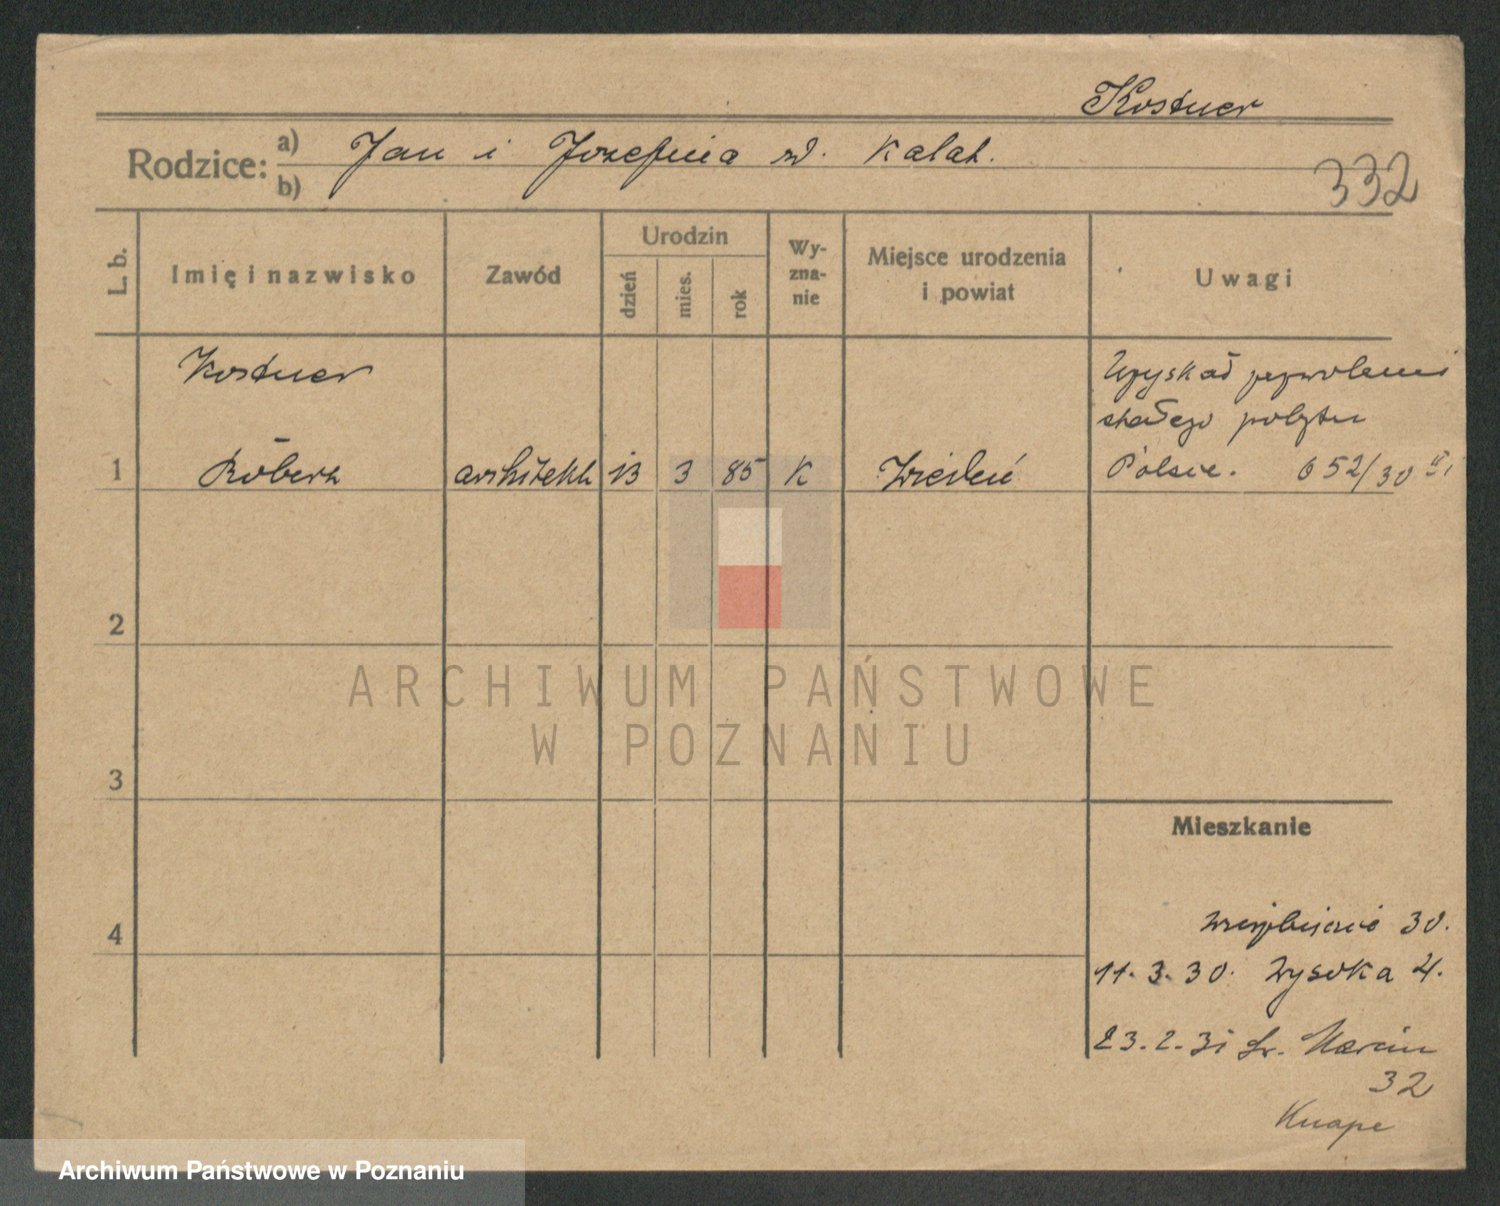 Kostner
Rodzice: a) Jan i Jozefina zd. Kalat.
b)
332
L. b.
Imię i nazwisko
Zawód
Urodzin
dzień
mies.
rok
Wy-
zna-
nie
Miejsce urodzenia
i powiat
Uwagi
Kostner
Uzyskał
stałego pobytu
1 Robert architekt 13 3 85 K Wiedeń Polsce. 652/30
2
ARCHIWUM PAŃSTWOWE
W POZNANIU
3
Mieszkanie
4
30.
11.3.30. Wysoka 4.
23.2.31 Św. Marcin
32
Knape
Archiwum Państwowe w Poznaniu